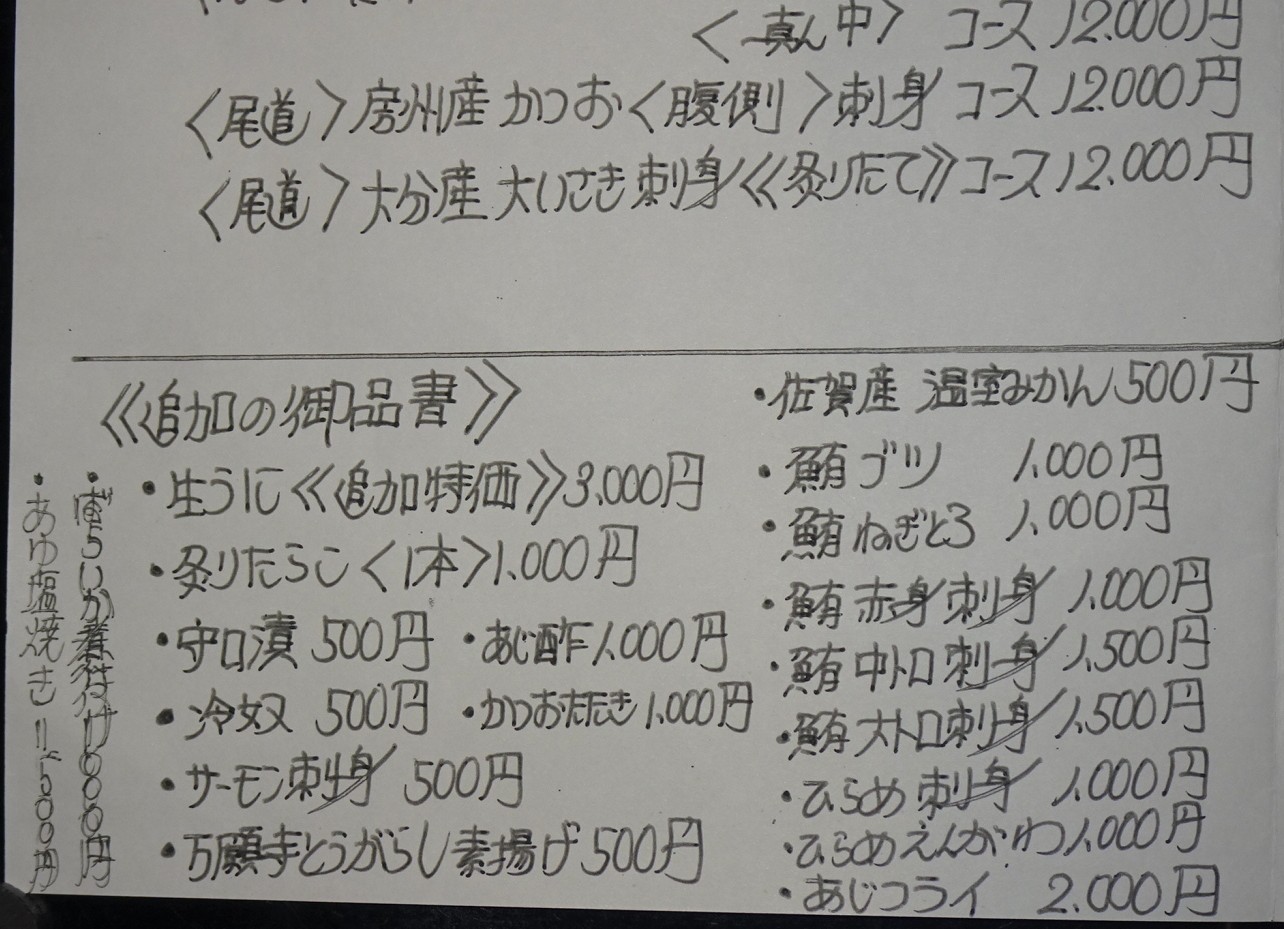 〈真ん中〉 コース 12.000円
〈尾道〉房州産 かつお〈腹側〉刺身 コース 12.000円
〈尾道〉大分産 大いさき 刺身《炙りたて》コース 12.000円
《追加の御品書》
・生うに《追加特価》3.000円
・炙りたらこ〈1本〉1.000円
・守口漬 500円 ・あじ酢 1.000円
・冷奴 500円 ・かつおたたき 1.000円
・サーモン刺身 500円
・万願寺とうがらし素揚げ 500円
・佐賀産 温室みかん 500円
・鮪 ブツ 1.000円
・鮪 ねぎとろ 1.000円
・鮪 赤身刺身 1.000円
・鮪 中トロ刺身 1.500円
・鮪 大トロ刺身 1.500円
・ひらめ 刺身 1.000円
・ひらめえんがわ 1.000円
・あじフライ 2.000円
煮付け
・あゆ塩焼き